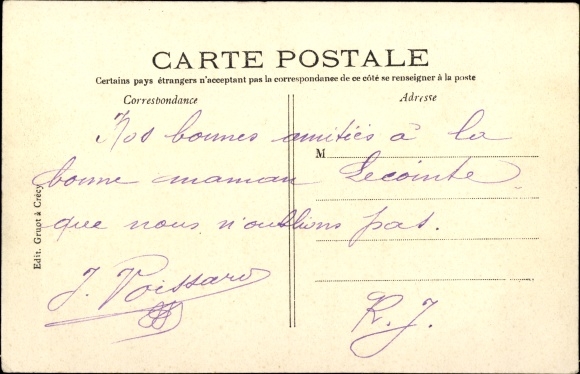 CARTE POSTALE
Certains pays étrangers n'acceptant pas la correspondance de ce côté se renseigner à la poste
Correspondance
Adresse
Nos bonnes amitiés à la
M
bonne maman Lecointe
que nous n'oublions pas.
J. Voissard
R. J.
Edit. Gruot à Crécy